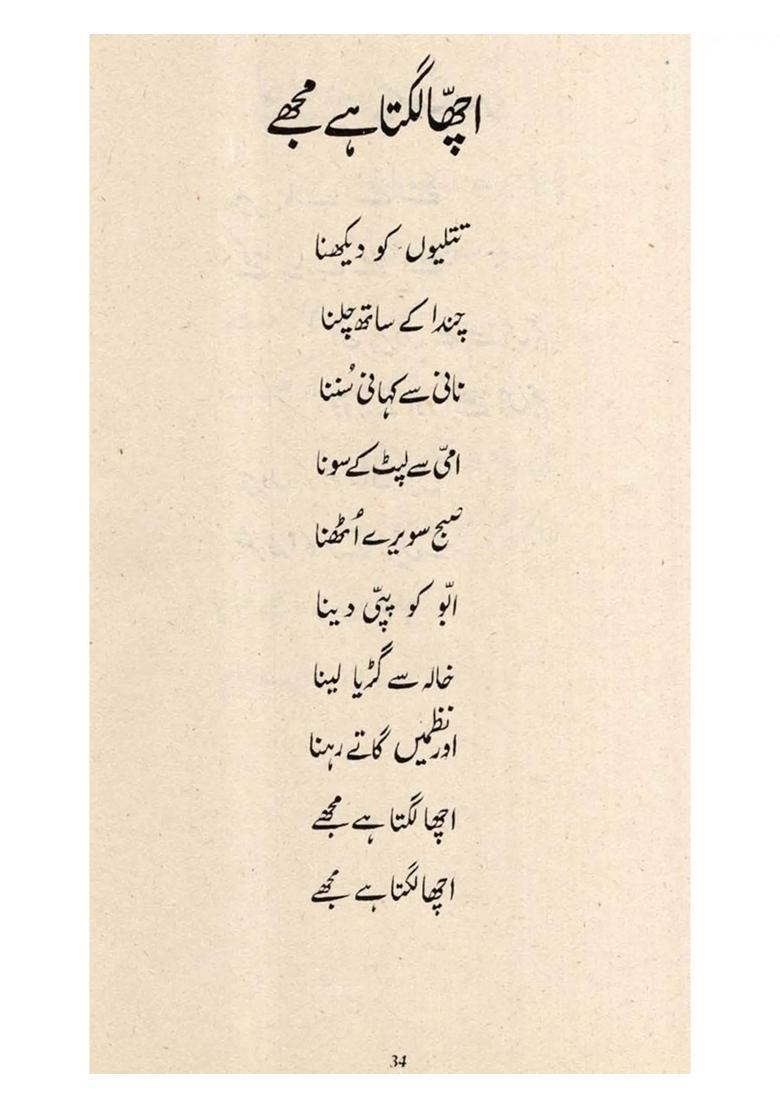 اچھّا لگتا ہے مجھے
تتلیوں کو دیکھنا
چندا کے ساتھ چلنا
نانی سے کہانی سُننا
امّی سے لپٹ کے سونا
صبح سویرے اُٹھنا
ابّو کو پپّی دینا
خالہ سے گڑیا لینا
اور نظمیں گاتے رہنا
اچھا لگتا ہے مجھے
اچھا لگتا ہے مجھے
34